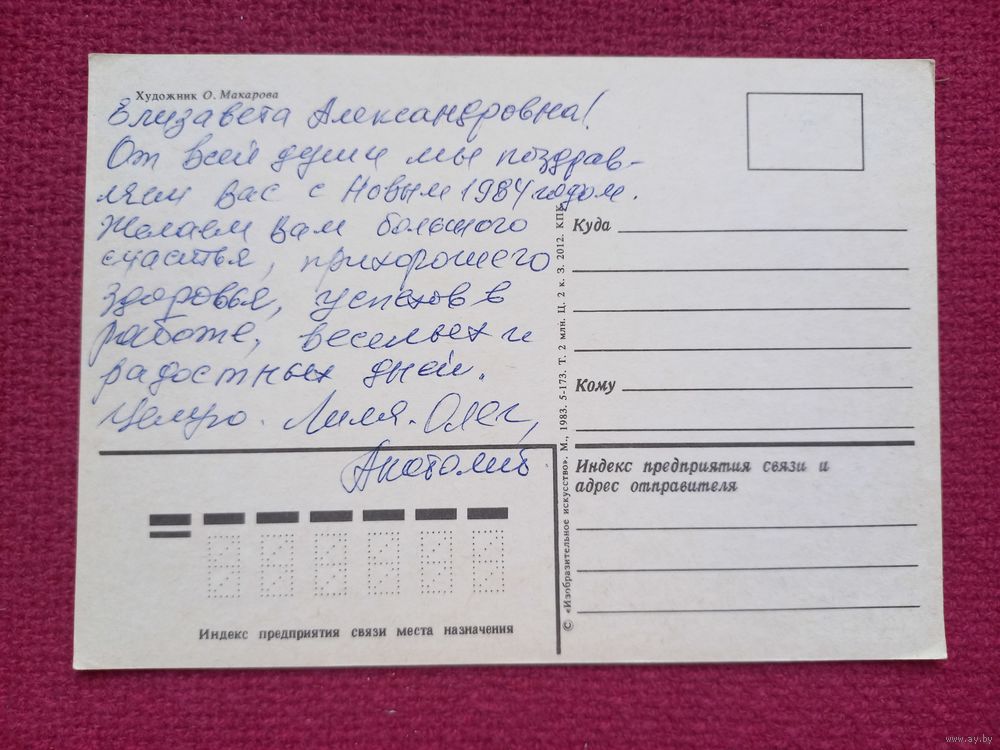 Художник О. Макарова
Елизавета Александровна!
От всей души мы поздрав-
ляем Вас с Новым 1984 годом.
Желаем Вам большого
счастья, прихорошего
здоровья, успехов в
работе, веселых и
радостных дней.
Целую. Лиля. Олег,
Анатолий
Куда
Кому
Индекс предприятия связи и
адрес отправителя
Индекс предприятия связи места назначения
© «Изобразительное искусство». М., 1983. 5-173. Т. 2 млн. Ц. 2 к. З. 2012. КПК
www.ay.by